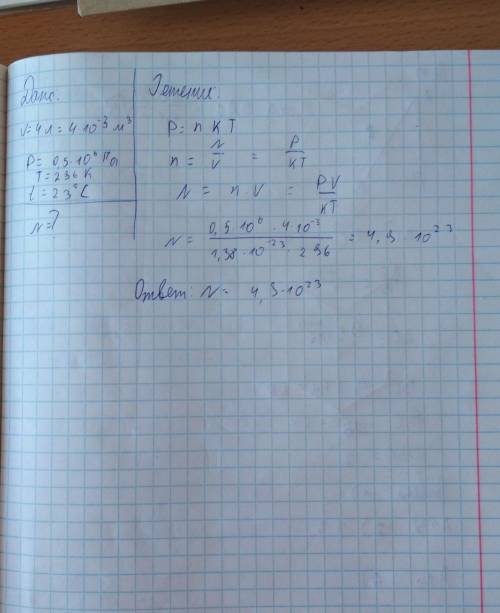 Дано:
V=4л=4·10⁻³ м³
P=0,5·10⁶ Па
T=296 К
t=23°C
N=?
Решение:
P=nKT
n=N/V=P/KT
N=n·V=PV/KT
N=0,5·10⁶·4·10⁻³/1,38·10⁻²³·296=4,9·10²³
Ответ: N=4,9·10²³